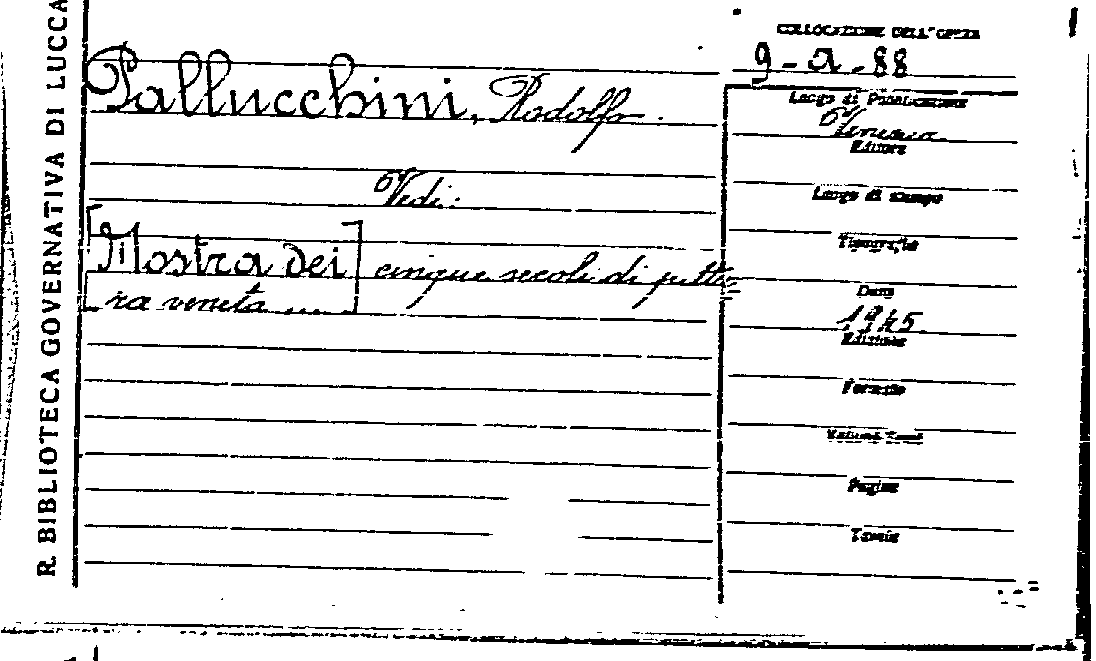 R. BIBLIOTECA GOVERNATIVA DI LUCCA
Pallucchini, Rodolfo.
Vedi:
[Mostra dei] cinque secoli di pittu=
ra veneta ....
COLLOCAZIONE DELL'OPERA
9-a-88
Luogo di Pubblicazione
Venezia
Editore
Luogo di stampa
Tipografia
Data
1945
Edizione
Formato
Volumi-Tomi
Pagine
Tavole